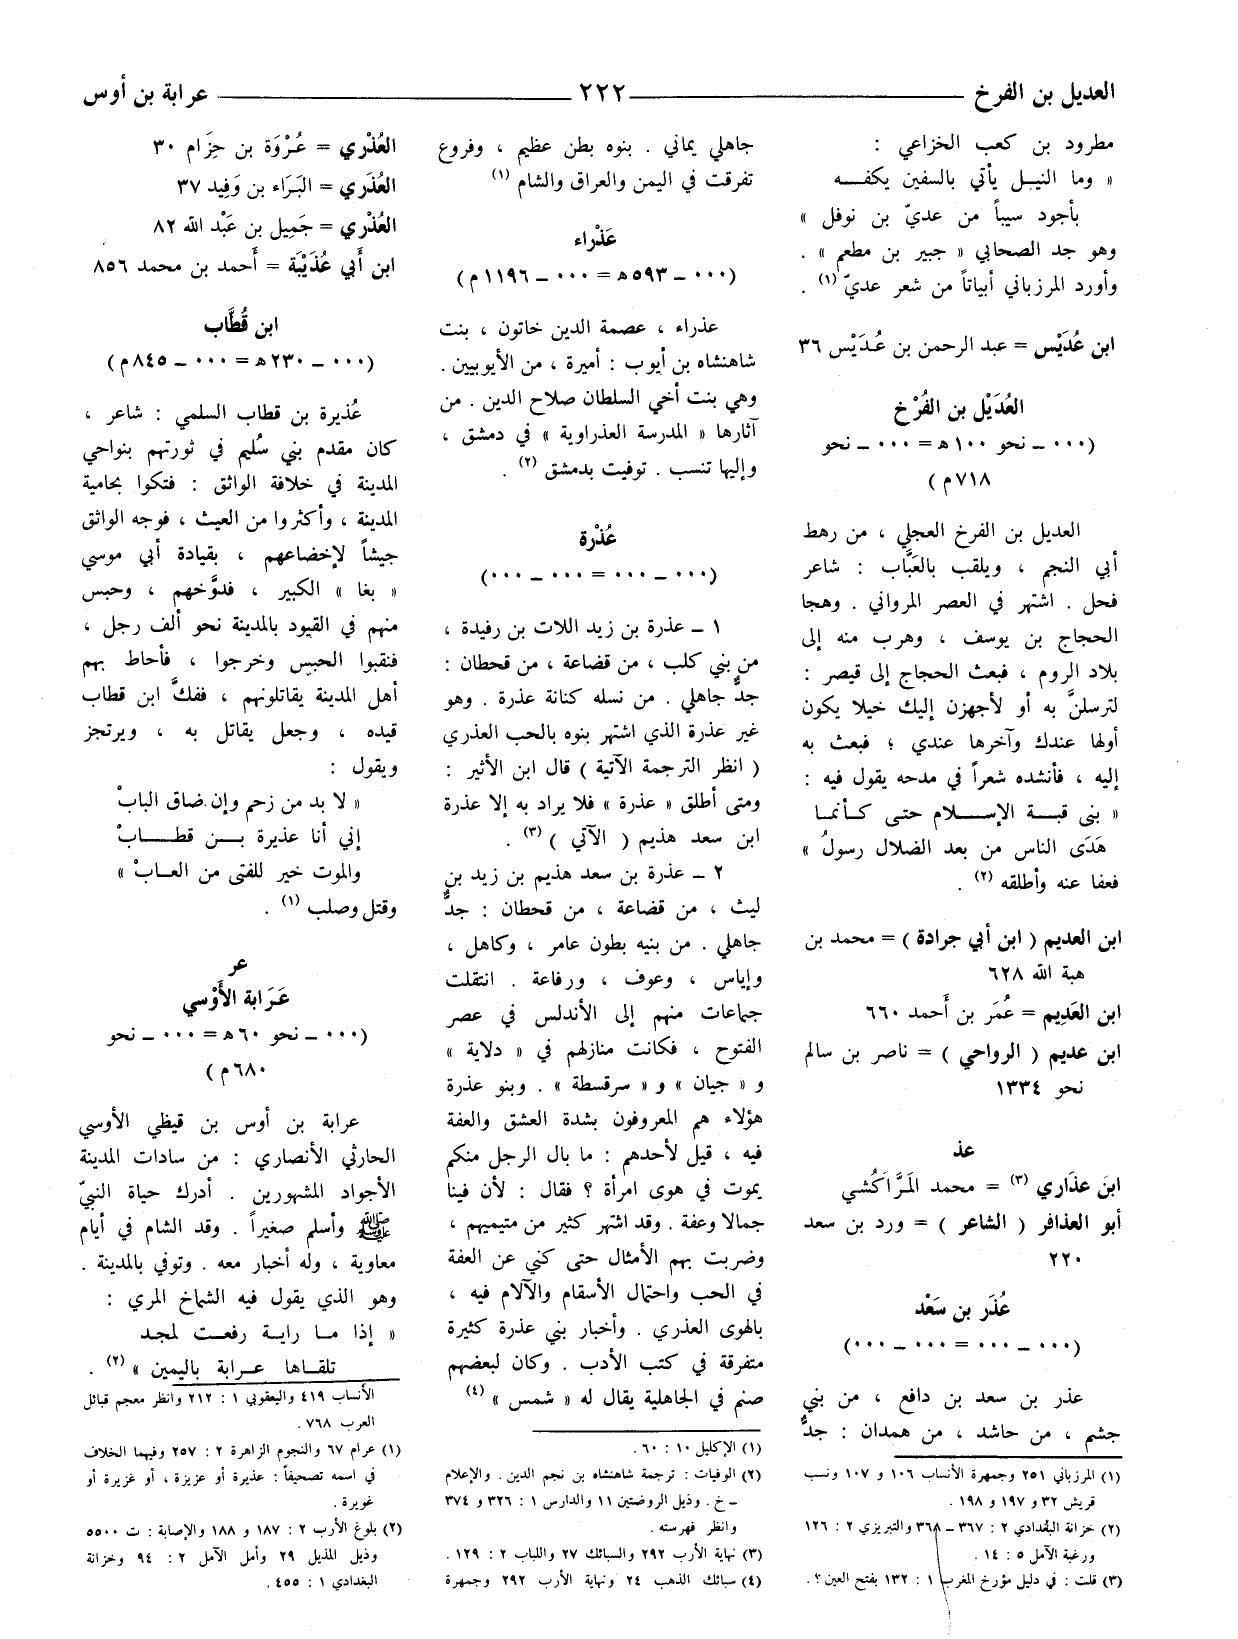 العديل بن الفرخ ٢٢٢ عرابة بن أوس
مطرود بن كعب الخزاعي :
« وما النيـل يأتي بالسفين يكفـه
بأجود سيباً من عديّ بن نوفل »
وهو جد الصحابي « جبير بن مطعم » .
وأورد المرزباني أبياتاً من شعر عديّ (١) .
ابن عُدَيْس = عبد الرحمن بن عُدَيْس ٣٦
العُدَيْل بن الفُرْخ
(٠٠٠ ـ نحو ١٠٠ هـ = ٠٠٠ ـ نحو
٧١٨ م )
العديل بن الفرخ العجلي ، من رهط
أبي النجم ، ويلقب بالعَبَّاب : شاعر
فحل . اشتهر في العصر المرواني . وهجا
الحجاج بن يوسف ، وهرب منه إلى
بلاد الروم ، فبعث الحجاج إلى قيصر :
لترسلنَّ به أو لأجهزن إليك خيلا يكون
أولها عندك وآخرها عندي ؛ فبعث به
إليه ، فأنشده شعراً في مدحه يقول فيه :
« بنى قبـة الإسـلام حتى كـأنمـا
هَدَى الناس من بعد الضلال رسولُ »
فعفا عنه وأطلقه (٢) .
ابن العديم ( ابن أبي جرادة ) = محمد بن
هبة الله ٦٢٨
ابن العَدِيم = عُمَر بن أَحمد ٦٦٠
ابن عديم ( الرواحي ) = ناصر بن سالم
نحو ١٣٣٤
عذ
ابن عذَاري (٣) = محمد المَرَّاكُشي
أبو العذافر ( الشاعر ) = ورد بن سعد
٢٢٠
عُذَر بن سَعْد
(٠٠٠ ـ ٠٠٠ = ٠٠٠ ـ ٠٠٠)
عذر بن سعد بن دافع ، من بني
جشم ، من حاشد ، من همدان : جدٌّ
(١) المرزباني ٢٥١ وجمهرة الأنساب ١٠٦ و ١٠٧ ونسب
قريش ٣٢ و ١٩٧ و ١٩٨ .
(٢) خزانة البغدادي ٢ : ٣٦٧ ـ ٣٦٨ والتبريزي ٢ : ١٢٦
ورغبة الآمل ٥ : ١٤ .
(٣) قلت : في دليل مؤرخ المغرب ١ : ١٣٢ بفتح العين ؟.
جاهلي يماني . بنوه بطن عظيم ، وفروع
تفرقت في اليمن والعراق والشام (١)
عَذْراء
(٠٠٠ ـ ٥٩٣ هـ = ٠٠٠ ـ ١١٩٦ م )
عذراء ، عصمة الدين خاتون ، بنت
شاهنشاه بن أيوب : أميرة ، من الأيوبيين .
وهي بنت أخي السلطان صلاح الدين . من
آثارها « المدرسة العذراوية » في دمشق ،
وإليها تنسب . توفيت بدمشق (٢) .
عُذْرة
(٠٠٠ ـ ٠٠٠ = ٠٠٠ ـ ٠٠٠)
١ ـ عذرة بن زيد اللات بن رفيدة ،
من بني كلب ، من قضاعة ، من قحطان :
جدٌّ جاهلي . من نسله كنانة عذرة . وهو
غير عذرة الذي اشتهر بنوه بالحب العذري
( انظر الترجمة الآتية ) قال ابن الأثير :
ومتى أطلق « عذرة » فلا يراد به إلا عذرة
ابن سعد هذيم ( الآتي ) (٣) .
٢ ـ عذرة بن سعد هذيم بن زيد بن
ليث ، من قضاعة ، من قحطان : جدٌّ
جاهلي . من بنيه بطون عامر ، وكاهل ،
وإياس ، وعوف ، ورفاعة . انتقلت
جماعات منهم إلى الأندلس في عصر
الفتوح ، فكانت منازلهم في « دلاية »
و « جيان » و « سرقسطة » . وبنو عذرة
هؤلاء هم المعروفون بشدة العشق والعفة
فيه ، قيل لأحدهم : ما بال الرجل منكم
يموت في هوى امرأة ؟ فقال : لأن فينا
جمالا وعفة . وقد اشتهر كثير من متيميهم ،
وضربت بهم الأمثال حتى كني عن العفة
في الحب واحتمال الأسقام والآلام فيه ،
بالهوى العذري . وأخبار بني عذرة كثيرة
متفرقة في كتب الأدب . وكان لبعضهم
صنم في الجاهلية يقال له « شمس » (٤)
(١) الإكليل ١٠ : ٦٠ .
(٢) الوفيات : ترجمة شاهنشاه بن نجم الدين . والإعلام
ـ خ . وذيل الروضتين ١١ والدارس ١ : ٣٢٦ و ٣٧٤
وانظر فهرسته .
(٣) نهاية الأرب ٢٩٢ والسبائك ٢٧ واللباب ٢ : ١٢٩ .
(٤) سبائك الذهب ٢٤ ونهاية الأرب ٢٩٢ وجمهرة
العُذْري = عُرْوَة بن حِزَام ٣٠
العُذَري = البَرَاء بن وَفِيد ٣٧
العُذْري = جَمِيل بن عَبْد الله ٨٢
ابن أَبي عُذَيْبَة = أَحمد بن محمد ٨٥٦
ابن قُطَّاب
(٠٠٠ ـ ٢٣٠ هـ = ٠٠٠ ـ ٨٤٥ م )
عُذيرة بن قطاب السلمي : شاعر ،
كان مقدم بني سُليم في ثورتهم بنواحي
المدينة في خلافة الواثق : فتكوا بحامية
المدينة ، وأكثروا من العيث ، فوجه الواثق
جيشاً لإخضاعهم ، بقيادة أبي موسي
« بغا » الكبير ، فدوَّخهم ، وحبس
منهم في القيود بالمدينة نحو ألف رجل ،
فنقبوا الحبس وخرجوا ، فأحاط بهم
أهل المدينة يقاتلونهم ، ففكَّ ابن قطاب
قيده ، وجعل يقاتل به ، ويرتجز
ويقول :
« لا بد من زحم وإن ضاق البابْ
إني أنا عذيرة بــن قطــابْ
والموت خير للفتى من العـابْ »
وقتل وصلب (١) .
عر
عَرَابة الأَوْسي
(٠٠٠ ـ نحو ٦٠ هـ = ٠٠٠ ـ نحو
٦٨٠ م )
عرابة بن أوس بن قيظي الأوسي
الحارثي الأنصاري : من سادات المدينة
الأجواد المشهورين . أدرك حياة النبيّ
ﷺ وأسلم صغيراً . وقد الشام في أيام
معاوية ، وله أخبار معه . وتوفي بالمدينة .
وهو الذي يقول فيه الشماخ المري :
« إذا مـا رايـة رفعـت لمجـد
تلقـاها عـرابة باليمين » (٢) .
الأنساب ٤١٩ واليعقوبي ١ : ٢١٢ وانظر معجم قبائل
العرب ٧٦٨ .
(١) عرام ٦٧ والنجوم الزاهرة ٢ : ٢٥٧ وفيهما الخلاف
في اسمه تصحيفاً : عذيرة أو عزيزة ، أو غزيرة أو
غويرة .
(٢) بلوغ الأرب ٢ : ١٨٧ و ١٨٨ والإصابة : ت ٥٥٠٠
وذيل المذيل ٢٩ وأمل الآمل ٢ : ٩٤ وخزانة
البغدادي ١ : ٤٥٥ .